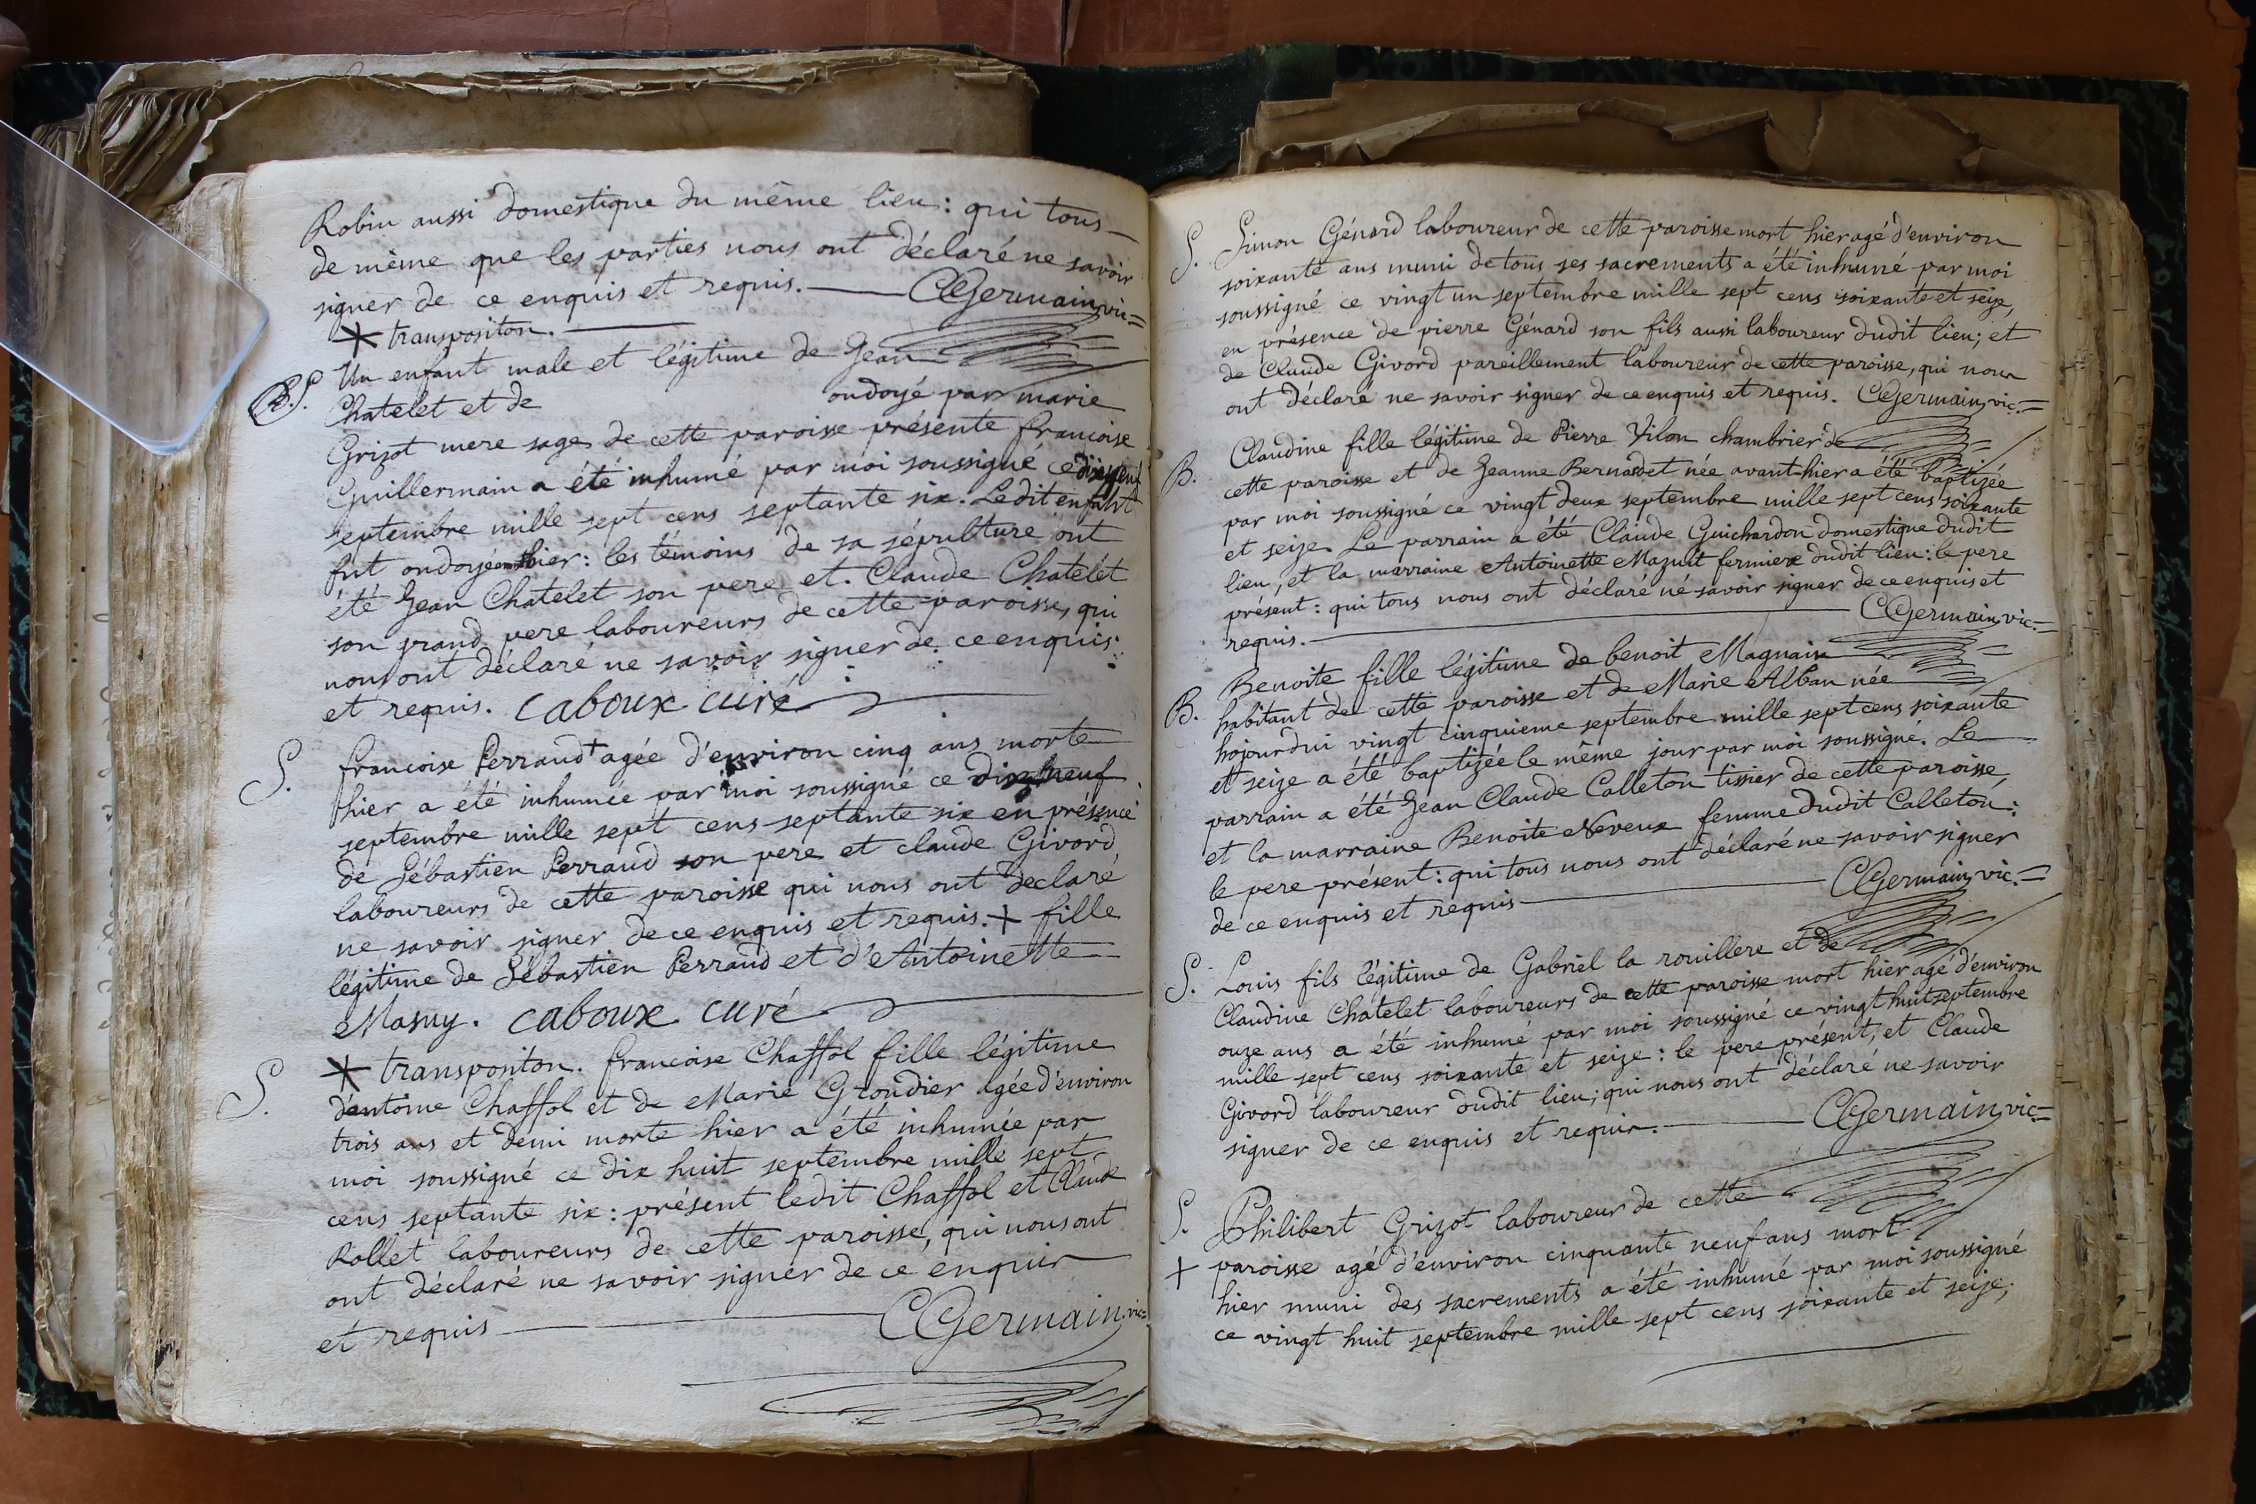 Robin aussi domestique du même lieu: qui tous
de même que les parties nous ont déclaré ne savoir
signer de ce enquis et requis. CGermain, vic.
* transpositon.
B.S. Un enfant male et légitime de Jean
Chatelet et de ondoyé par marie
Grizot mere sage de cette paroisse présente francoise
Guillermain a été inhumé par moi soussigné ce dixneuf
septembre mille sept cens septante six. Ledit enfant
fut ondoyé hier: les témoins de sa sépulture ont
été Jean Chatelet son pere et Claude Chatelét
son grand pere laboureurs de cette paroisse, qui
nous ont déclaré ne savoir signer de ce enquis
et requis. Caboux curé
S. francoise Perraud + agée d'environ cinq ans morte
hier a été inhumée par moi soussigné ce dix neuf
septembre mille sept cens septante six en présence
de Sébastien Perraud son pere et claude Givord
laboureurs de cette paroisse qui nous ont déclaré
ne savoir signer de ce enquis et requis. + fille
légitime de Sébastien Perraud et d'Antoinette
Masuy. Caboux curé
S. * transpositon. francoise Chaffol fille légitime
d'antoine Chaffol et de Marie Grondier agée d'environ
trois ans et demi morte hier a été inhumée par
moi soussigné ce dix huit septembre mille sept
cens septante six: présent ledit Chaffol et Claude
Rollet laboureurs de cette paroisse, qui nous ont
ont déclaré ne savoir signer de ce enquis
et requis CGermain, vic.
S. Simon Génard laboureur de cette paroisse mort hier agé d'environ
soixante ans muni de tous ses sacrements a été inhumé par moi
soussigné ce vingt un septembre mille sept cens soixante et seize,
en présence de pierre Génard son fils aussi laboureur dudit lieu; et
de Claude Givord pareillement laboureur de cette paroisse, qui nous
ont déclaré ne savoir signer de ce enquis et requis. CGermain, vic.
B. Claudine fille légitime de Pierre Vilon chambrier de
cette paroisse et de Jeanne Bernardet née avant-hier a été baptizée
par moi soussigné ce vingt deux septembre mille sept cens soixante
et seize. Le parrain a été Claude Guichardon domestique dudit
lien, et la marraine Antoinette Mazuit fermiere dudit lieu: le pere
présent: qui tous nous ont déclaré né savoir signer de ce enquis et
requis. CGermain, vic.
B. Benoite fille légitime de benoit Magnain
habitant de cette paroisse et de Marie Alban née
hojourdui vingt cinquieme septembre mille sept cens soixante
et seize a été baptizée le même jour par moi soussigné. Le
parrain a été Jean Claude Calleton tissier de cette paroisse,
et la marraine Benoite Neveux femme dudit Calleton:
le pere présent: qui tous nous ont déclaré ne savoir signer
de ce enquis et requis CGermain, vic.
S. Louis fils légitime de Gabriel la rouillere et de
Claudine Chatelet laboureurs de cette paroisse mort hier agé d'environ
onze ans a été inhumé par moi soussigné ce vingt huit septembre
mille sept cens soixante et seize: le pere présent, et Claude
Givord laboureur dudit lieu; qui nous ont déclaré ne savoir
signer de ce enquis et requis. CGermain, vic.
S. Philibert Grizot laboureur de cette
+ paroisse agé d'environ cinquante neuf ans mort
hier muni des sacrements a été inhumé par moi soussigné
ce vingt huit septembre mille sept cens soixante et seize,